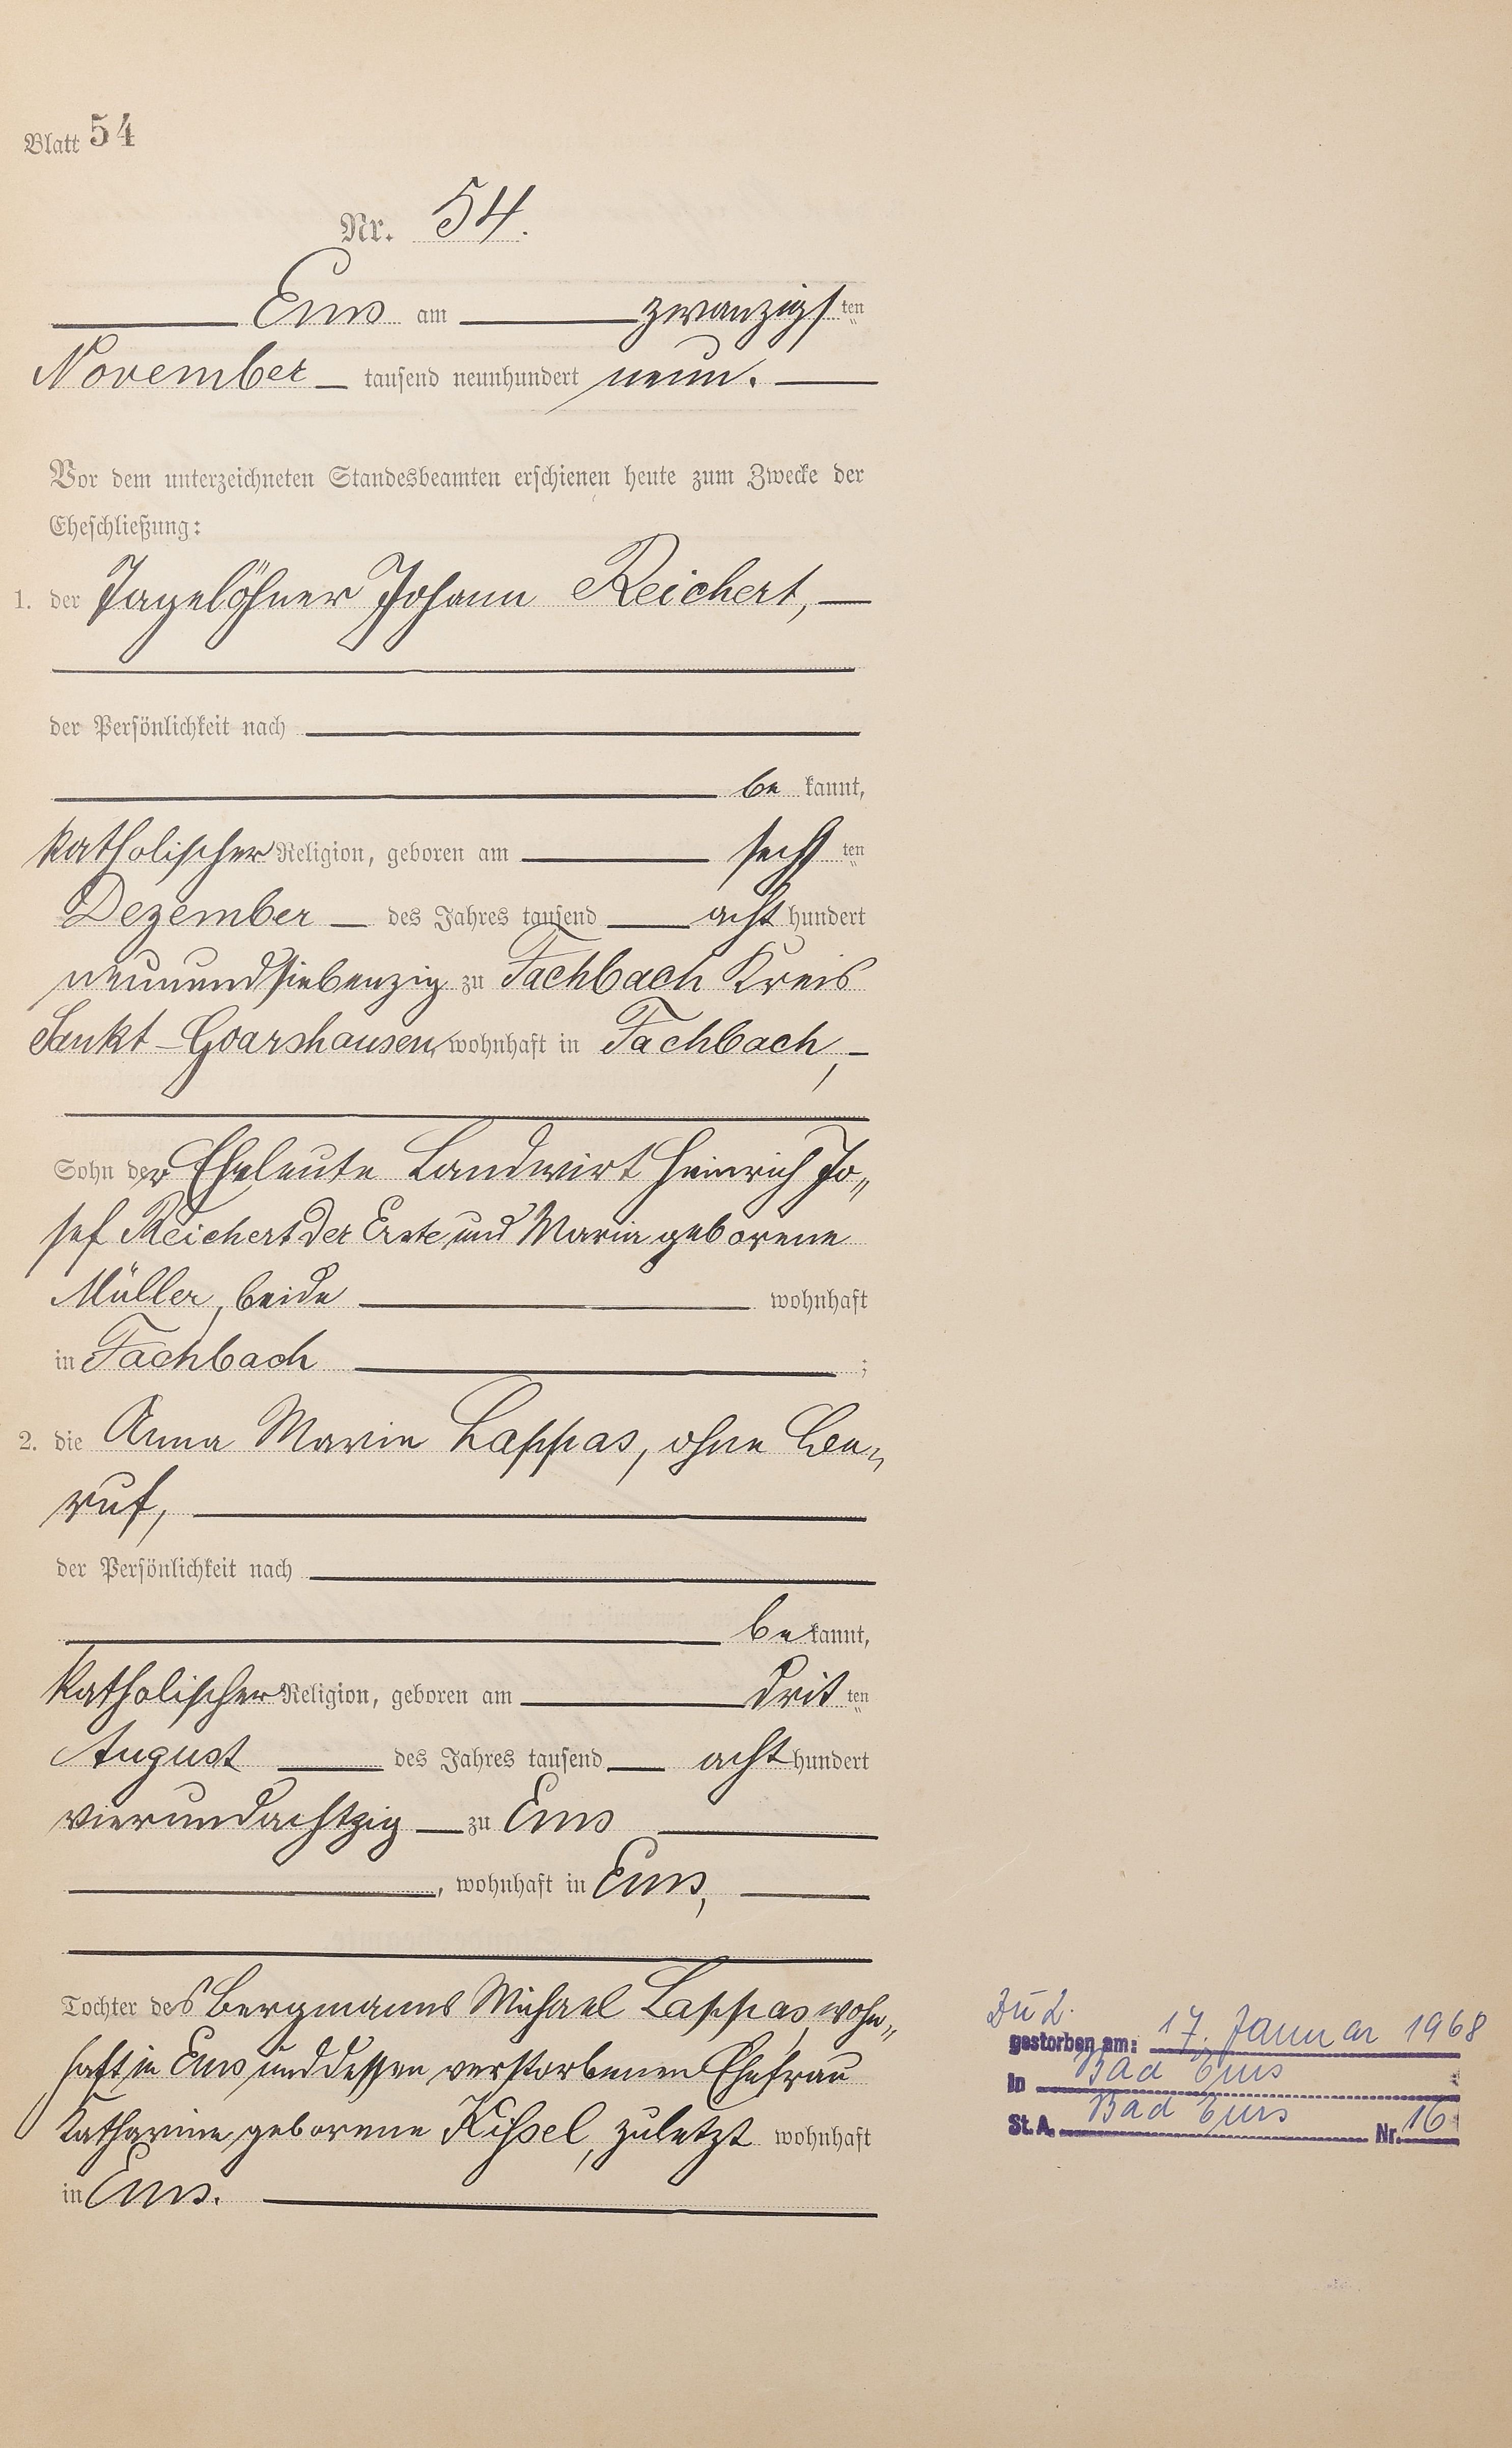 Blatt 54
Nr. 54.
Ems am zwanzigsten
November tausend neunhundert neun.
Vor dem unterzeichneten Standesbeamten erschienen heute zum Zwecke der
Eheschließung:
1. der Tagelöhner Johann Reichert,
der Persönlichkeit nach
bekannt,
katholischer Religion, geboren am sechsten
Dezember des Jahres tausend acht hundert
neunundsiebenzig zu Fachbach Kreis
Sankt-Goarshausen, wohnhaft in Fachbach,
Sohn der Eheleute Landwirt Heinrich Jo„
sef Reichert der Erste und Maria geborene
Müller, beide wohnhaft
in Fachbach ;
2. die Anna Maria Lappas, ohne Be„
ruf,
der Persönlichkeit nach
bekannt,
katholischer Religion, geboren am dritten
August des Jahres tausend acht hundert
vierundachtzig zu Ems
, wohnhaft in Ems,
Tochter des Bergmanns Michael Lappas, wohn„
haft in Ems und dessen verstorbenen Ehefrau
Katharina geborene Kissel, zuletzt wohnhaft
in Ems.
Zu 2.
gestorben am: 17. Januar 1968
in Bad Ems
St. A. Bad Ems Nr. 16